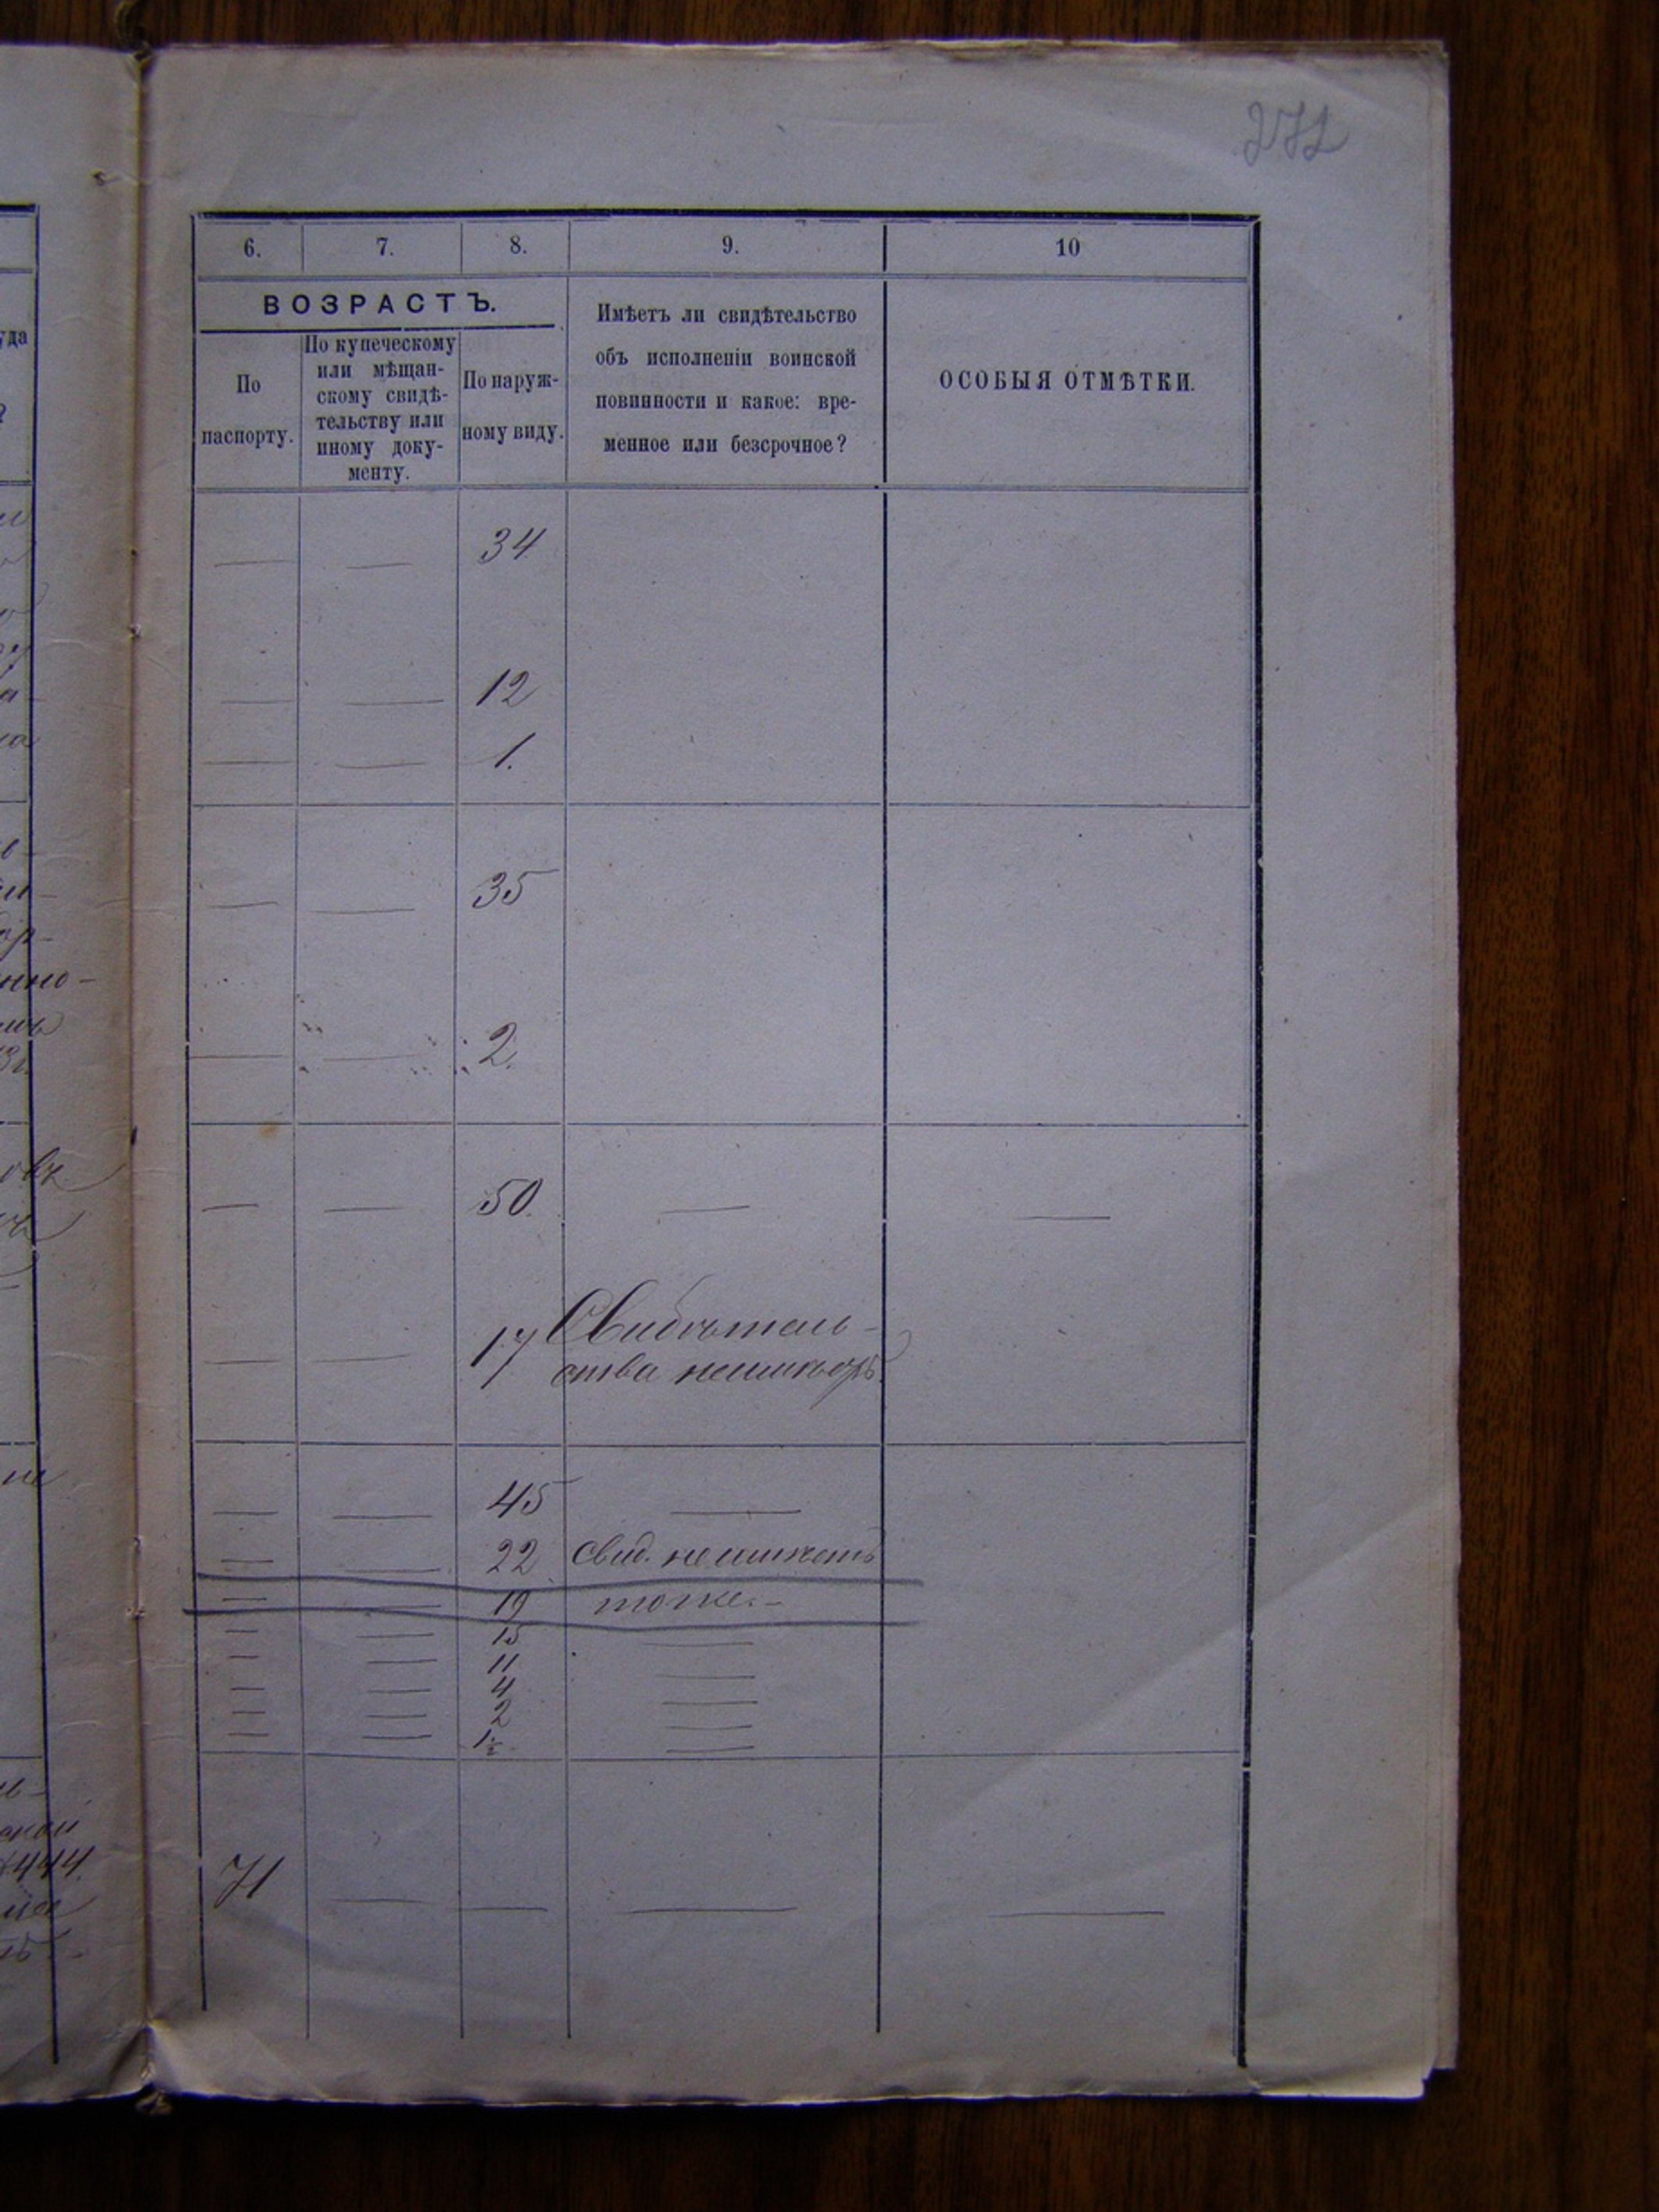 272
6. 7. 8. 9. 10
уда
?
ВОЗРАСТЪ.
По
паспорту.
По купеческому
или мѣщан-
скому свидѣ-
тельству или
иному доку-
менту.
По наруж-
ному виду.
Имѣетъ ли свидѣтельство
объ исполненіи воинской
повинности и какое: вре-
менное или безсрочное?
ОСОБЫЯ ОТМѢТКИ.
— — 34
— — 12
— — 1.
— — 35
— — 2.
— — 50. — —
— — 17 Свидѣтель-
ства неимѣетъ
— — 45 —
— — 22 свид. неимѣетъ
— — 19 тоже. –
— — 15 —
— — 11 —
— — 4 —
— — 2 —
— — 1½ —
71 — — — —
нно-
444.